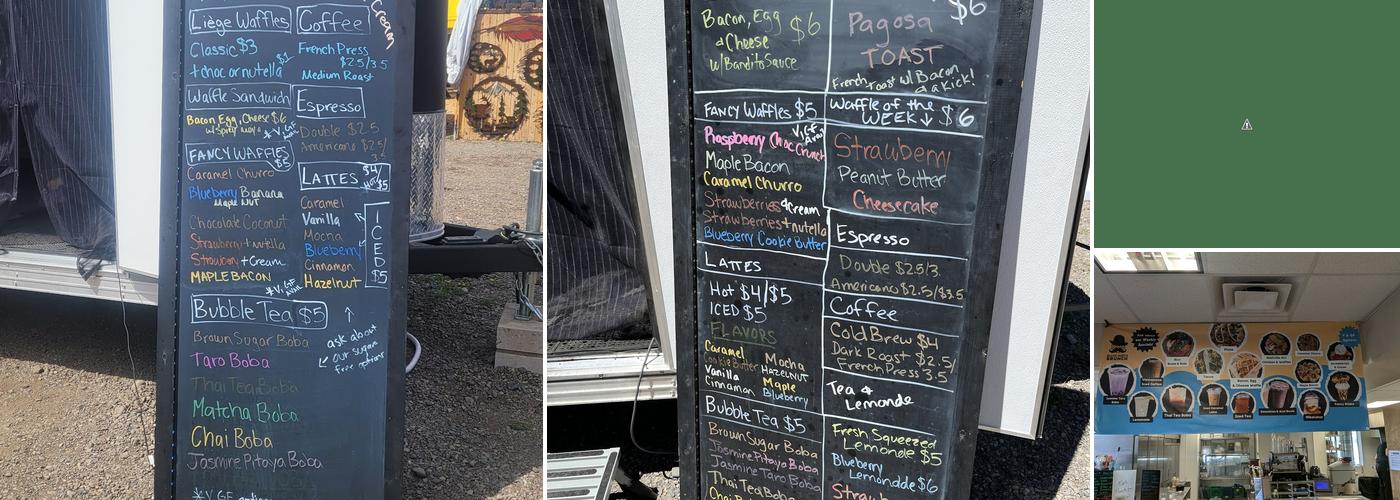 Cream
Liège Waffles
Classic $3
+ choc or nutella $1
Waffle Sandwich
Bacon, Egg, Cheese $6
w/ Spicy mayo
* V, GF
FANCY WAFFLES
$5
Caramel Churro
Blueberry Banana
Maple Nut
Chocolate Coconut
Strawberry + nutella
Strawberry + Cream
MAPLE BACON
* V, GF
Coffee
French Press
$2.5/3.5
Medium Roast
Espresso
Double $2.5
Americano $2.5/
3.5
LATTES $4/
Hot/
$5
Caramel
Vanilla
Mocha
Blueberry
Cinnamon
Hazelnut
ICED
$5
Bubble Tea $5
ask about
our sugar
free options
Brown Sugar Boba
Taro Boba
Thai Tea Boba
Matcha Boba
Chai Boba
Jasmine Pitaya Boba
* V, GF
Bacon, Egg $6
& Cheese
w/ Bandito Sauce
$6
Pagosa
TOAST
French toast w/ Bacon
& a kick!
FANCY WAFFLES $5
V, GF
Raspberry Choc Crunch
Maple Bacon
Caramel Churro
Strawberries & Cream
Strawberries + nutella
Blueberry Cookie Butter
Waffle of the
WEEK ↓ $6
Strawberry
Peanut Butter
Cheesecake
LATTES
Hot $4/$5
ICED $5
FLAVORS
Caramel
Cookie Butter
Vanilla
Cinnamon
Mocha
HAZELNUT
Maple
Blueberry
Espresso
Double $2.5/3.
Americano $2.5/$3.5
Coffee
Cold Brew $4
Dark Roast $2.5/
French Press 3.5
Tea &
Lemonde
Bubble Tea $5
Brown Sugar Boba
Jasmine Pitaya Boba
Jasmine Taro Boba
Thai Tea Boba
Chai Boba
Fresh Squeezed
Lemonade $5
Blueberry
Lemonade $6